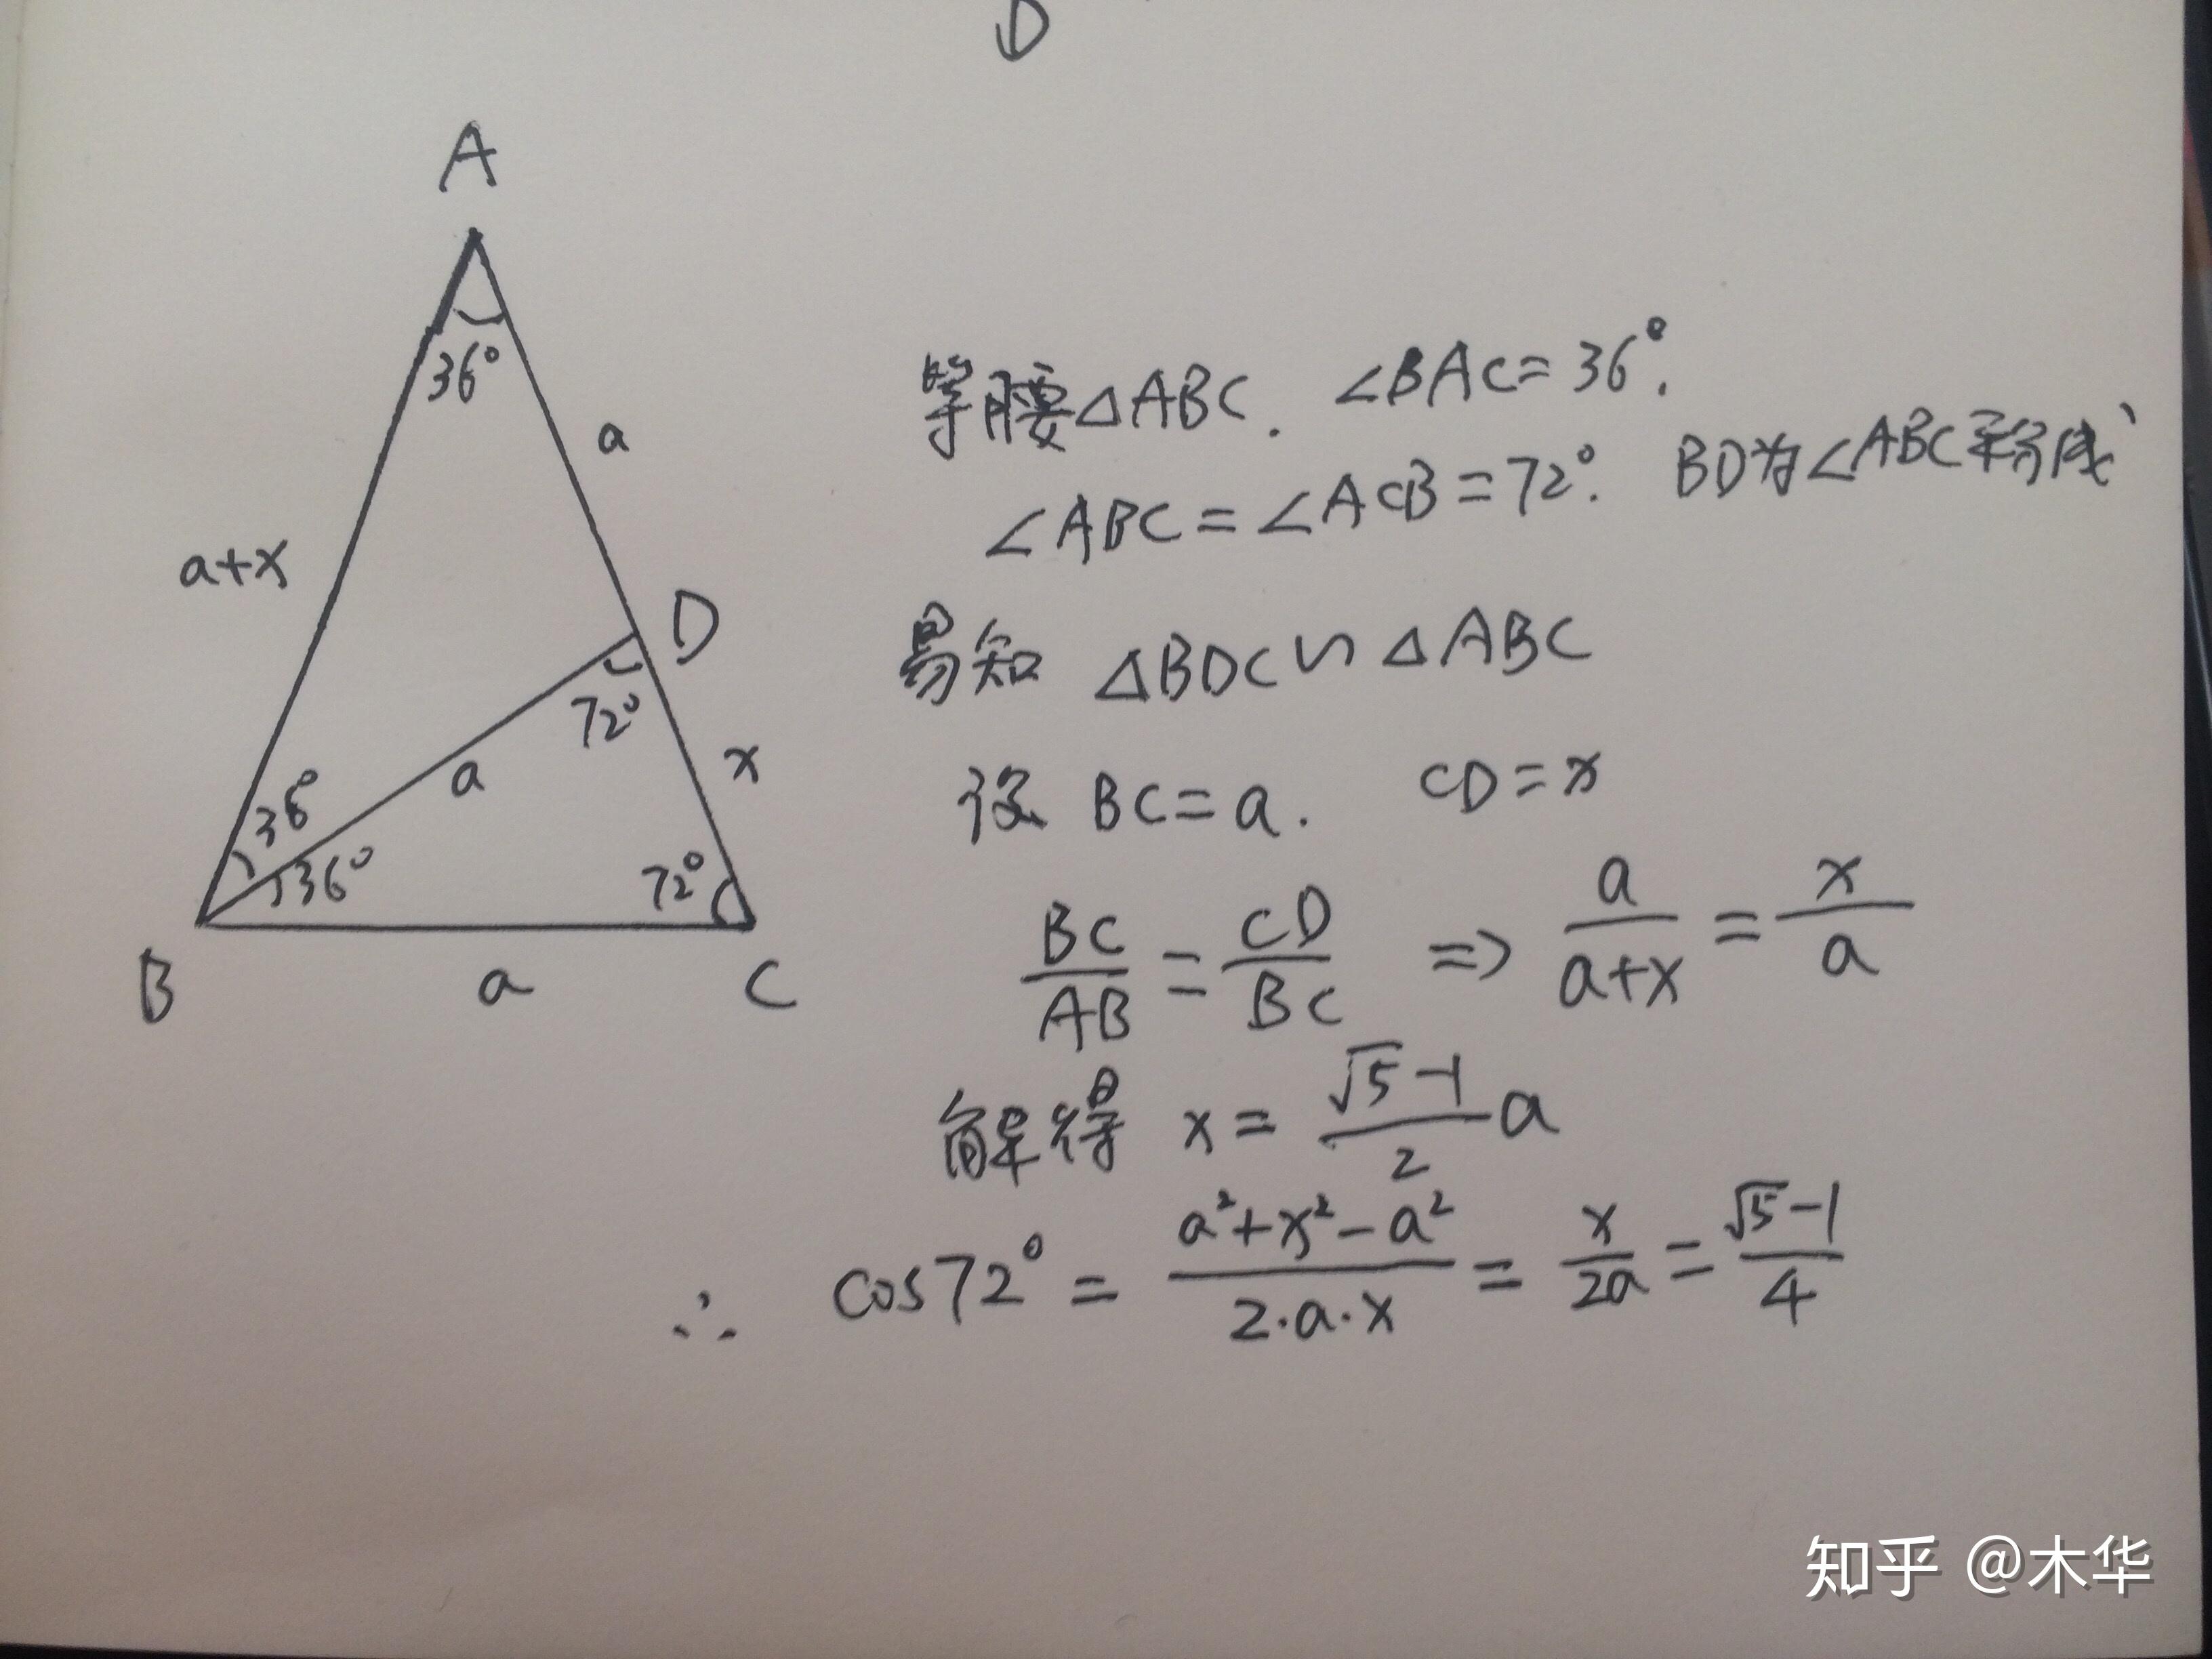 D
A
36°
a
a+x
D
72°
x
a
36°
36°
72°
B
a
C
等腰△ABC. ∠BAC=36°.
∠ABC=∠ACB=72°. BD为∠ABC平分线
易知 △BDC∽△ABC
设 BC=a. CD=x
BC/AB=CD/BC => a/(a+x)=x/a
解得 x=(√5-1)/2 a
∴ cos72°=(a²+x²-a²)/(2·a·x)=x/2a=(√5-1)/4
知乎 @木华